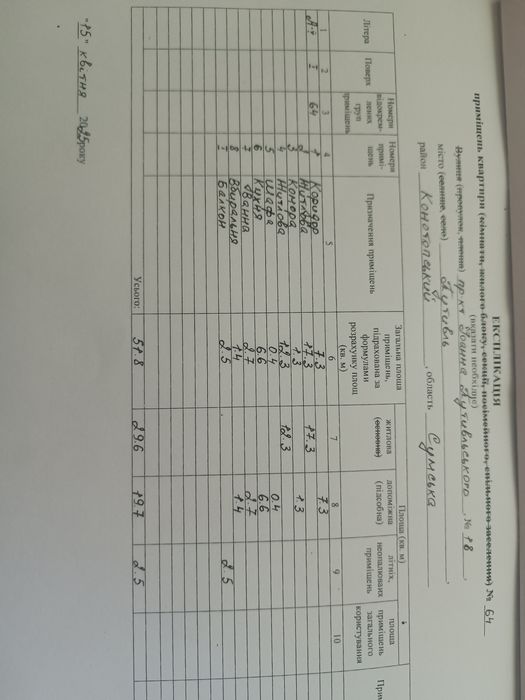 ЕКСПЛІКАЦІЯ
приміщень квартири (кімнати, жилого блоку, секції, посімейного, спільного заселення) № 64
(вказати необхідне)
Вулиця (провулок, площа) пр-кт Іоанна Путивльського № 18
місто (селище, село) Путивль
район Конотопський, область Сумська
Літера Поверх Номери відокремлених груп приміщень Номери приміщень Призначення приміщень Загальна площа приміщень, підрахована за формулами розрахунку площ (кв. м) Площа (кв. м)
житлова (основна) допоміжна (підсобна) літніх, неопалюваних приміщень площа приміщень загального користування
1 2 3 4 5 6 7 8 9 10
А-5 I 64 1 Коридор 7.3 7.3
2 Житлова 17.3 17.3
3 Комора 1.3 1.3
4 Житлова 12.3 12.3
5 Шафа 0.4 0.4
6 Кухня 6.6 6.6
7 Ванна 2.7 2.7
8 Вбиральня 1.4 1.4
I Балкон 2.5 2.5
Усього: 51.8 29.6 19.7 2.5
"15" квітня 2025 року